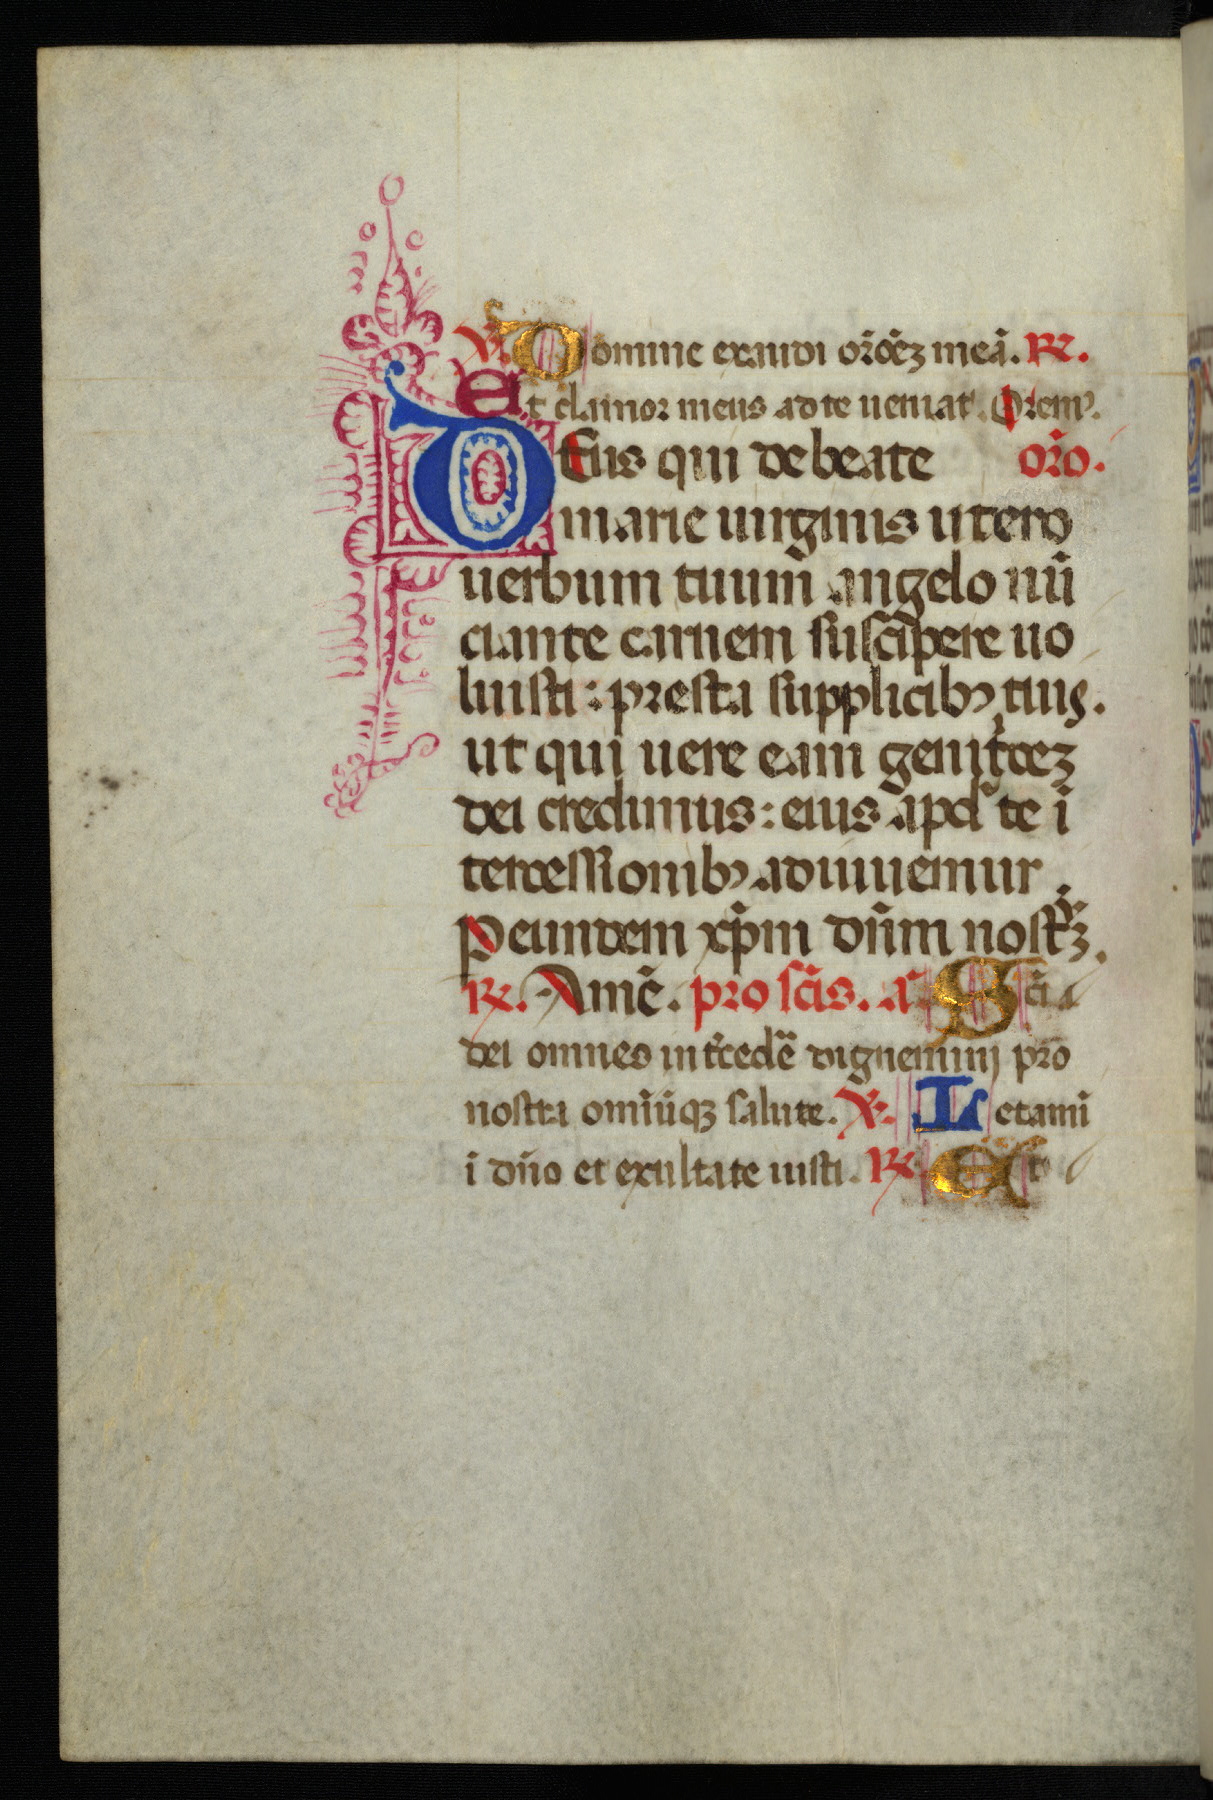 ℣. Domine exaudi or̄oēꝫ meā. ℞.
Et clamor meus ad te ueniat. Orem⁹.
DEus qui de beate or̄o.
marie uirginis utero
uerbum tuum angelo nū
ciante carnem suscipere uo
luisti: presta supplicibꝰ tuis.
ut qui uere eam genit̄cēꝫ
dei credimus: eius apd̄ te ī
tercessionibꝰ adiuuemur.
P eundem xp̄m dn̄m nostꝝ.
℞. Amē. pro scīs. a᷑ Scī a
dei omnes int̄cedē dignemini pro
nostra omīūqꝫ salute. ℣. Letami
ī dn̄o et exultate iusti. ℞. Et